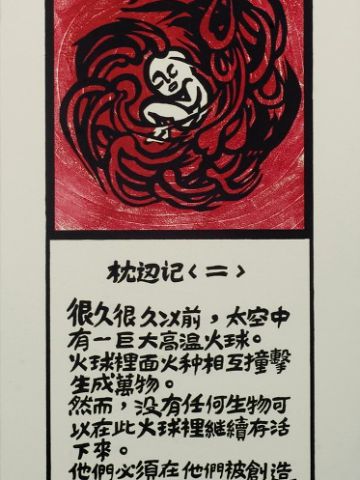 枕边记〈二〉
很久很久以前，太空中
有一巨大高温火球。
火球裡面火种相互撞擊
生成萬物。
然而，没有任何生物可
以在此火球裡継續存活
下來。
他們必須在他們被創造